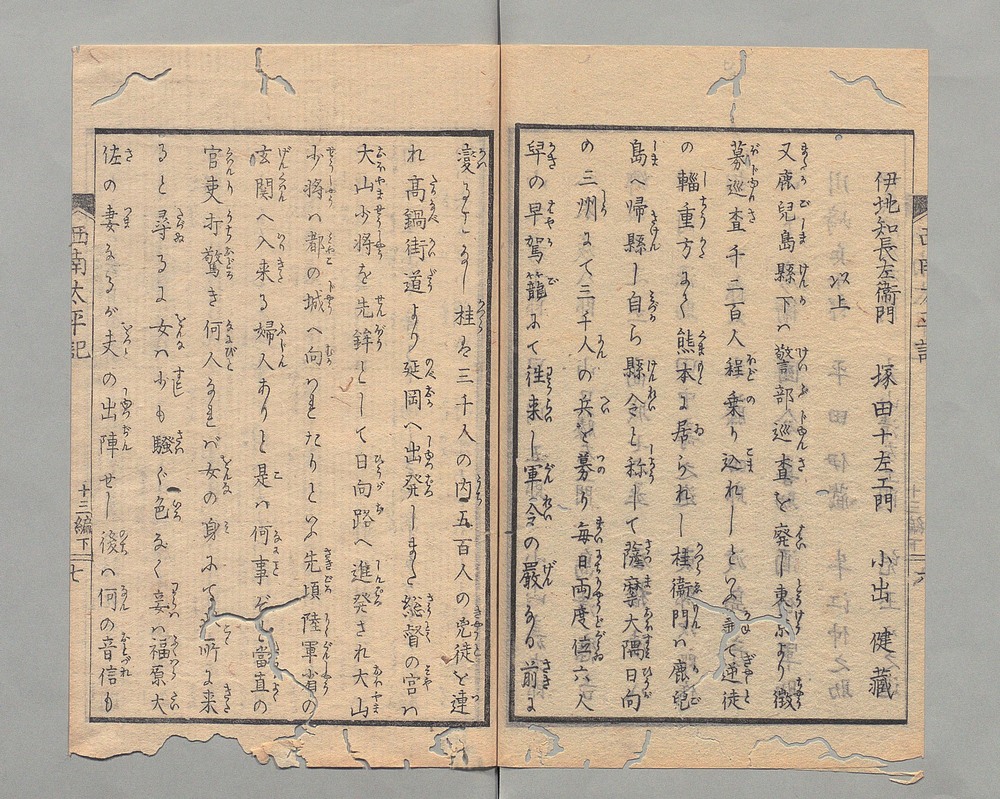 伊地知長左衞門　塚田十左エ門　小出　健藏
以上
又鹿兒島縣下ハ警部巡査を廃し東京より徴
募巡査千二百人程乗り込れしといふ
の輜重方にて熊本に居られし桂衞門ハ鹿兒
島へ歸縣し自ら縣令と称して薩摩大隅日向
の三州にて三千人の兵を募り毎日両度位六人
舁の早駕籠にて徃来し軍令の嚴なる前に
變ることなし桂は三千人の内五百人の兇徒を連
れ高鍋街道より延岡へ出発しまた総督の宮ハ
大山少将を先鋒として日向路へ進発され大山
少将ハ都の城へ向はれたりといふ先頃陸軍省の
玄関へ入来る婦人ありと是ハ何事ぞと當直の
官吏打驚き何人なれバ女の身にて所に来
ると尋るに女ハ少も騒ぐ色なく妾ハ福原大
佐の妻なるが夫の出陣せし後ハ何の音信も
西南太平記
十三編下
七